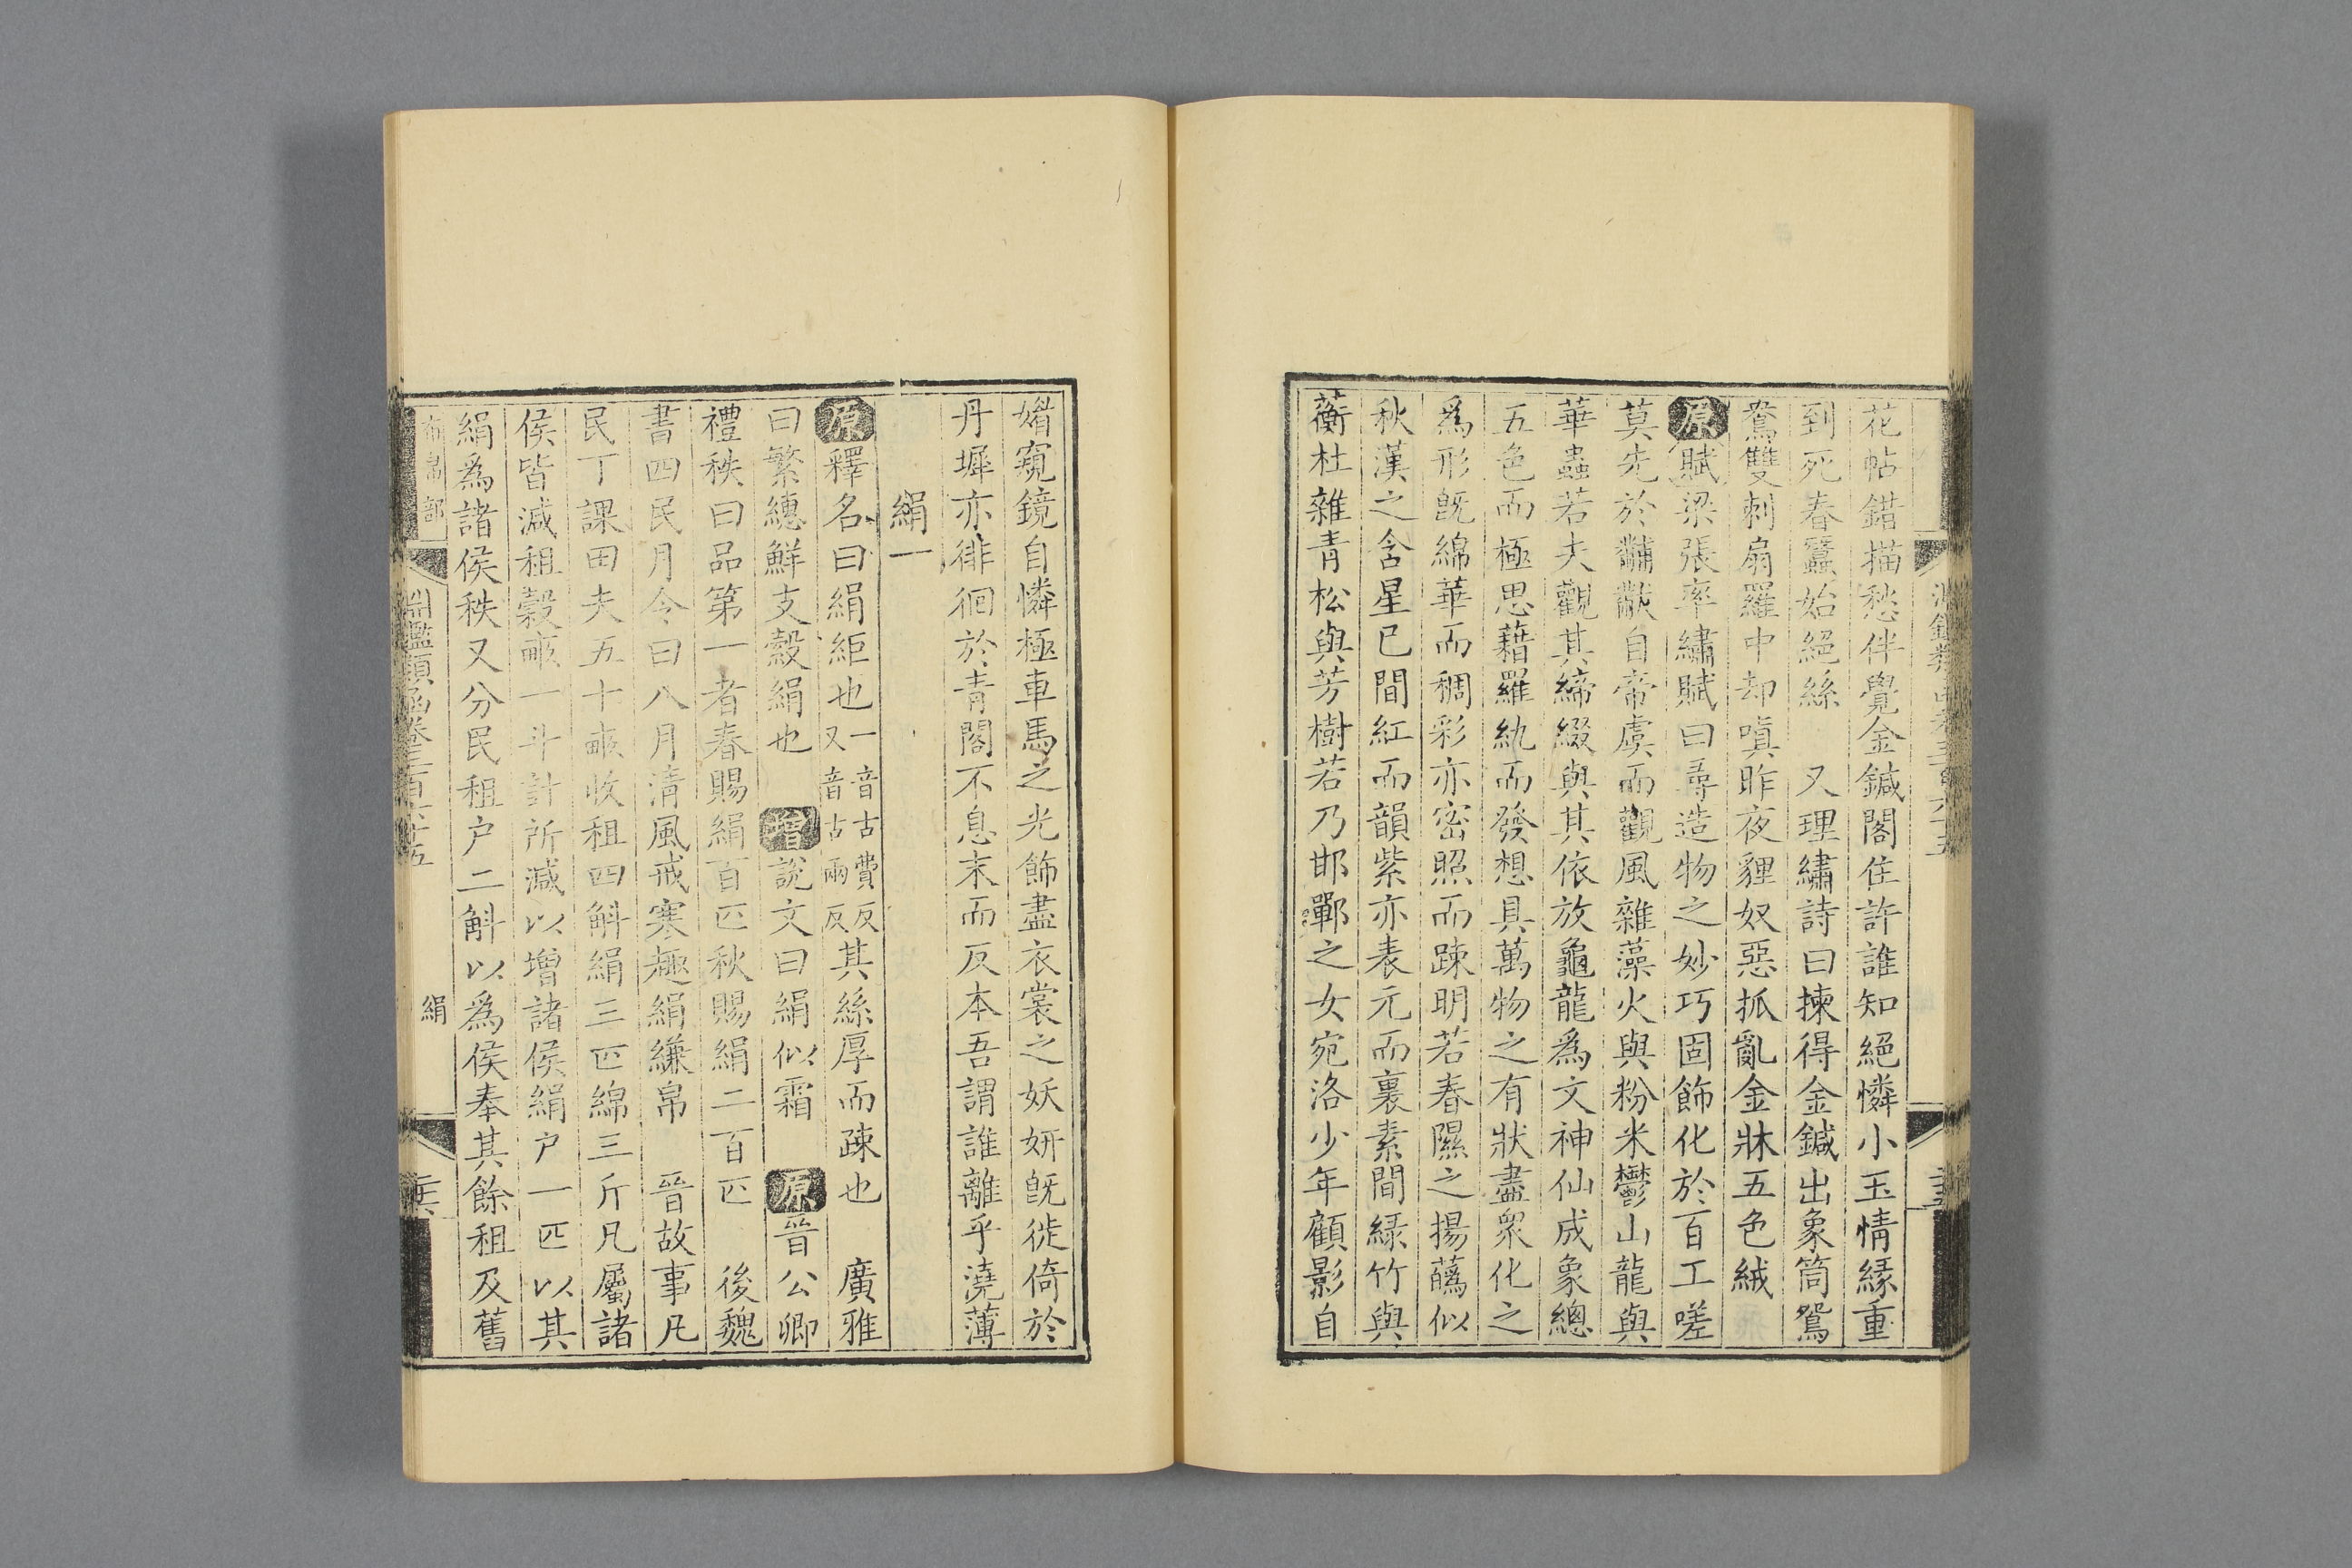 花帖錯描愁伴覺金鍼閣住許誰知絕憐小玉情緣重
到死春蠶始絕絲　又理繡詩曰揀得金鍼出象筒鴛
鴦雙刺扇羅中却嗔昨夜貍奴惡抓亂金牀五色絨
原賦梁張率繡賦曰尋造物之妙巧固飾化於百工嗟
莫先於黼黻自帝虞而觀風雜藻火與粉米鬱山龍與
華蟲若夫觀其締綴與其依放龜龍爲文神仙成象總
五色而極思藉羅紈而發想具萬物之有狀盡衆化之
爲形旣綿華而稠彩亦密照而疎明若春隰之揚蘤似
秋漢之含星已間紅而韻紫亦表元而裏素間緑竹與
蘅杜雜青松與芳樹若乃邯鄲之女宛洛少年顧影自
媚窺鏡自憐極車馬之光飾盡衣裳之妖妍旣徙倚於
丹墀亦徘徊於青閣不息末而反本吾謂誰離乎澆薄
絹一
原釋名曰絹絚也一音古費反又音古兩反其絲厚而疎也　廣雅
曰繁總鮮支縠絹也　增說文曰絹似霜　原晉公卿
禮秩曰品第一者春賜絹百匹秋賜絹二百匹　後魏
書四民月令曰八月清風戒寒趣絹縑帛　晉故事凡
民丁課田夫五十畝收租四斛絹三匹綿三斤凡屬諸
侯皆減租穀畝一斗計所減以增諸侯絹户一匹以其
絹爲諸侯秩又分民租户二斛以爲侯奉其餘租及舊
布帛部　淵鑑類函卷三百六十五　絹　二十六